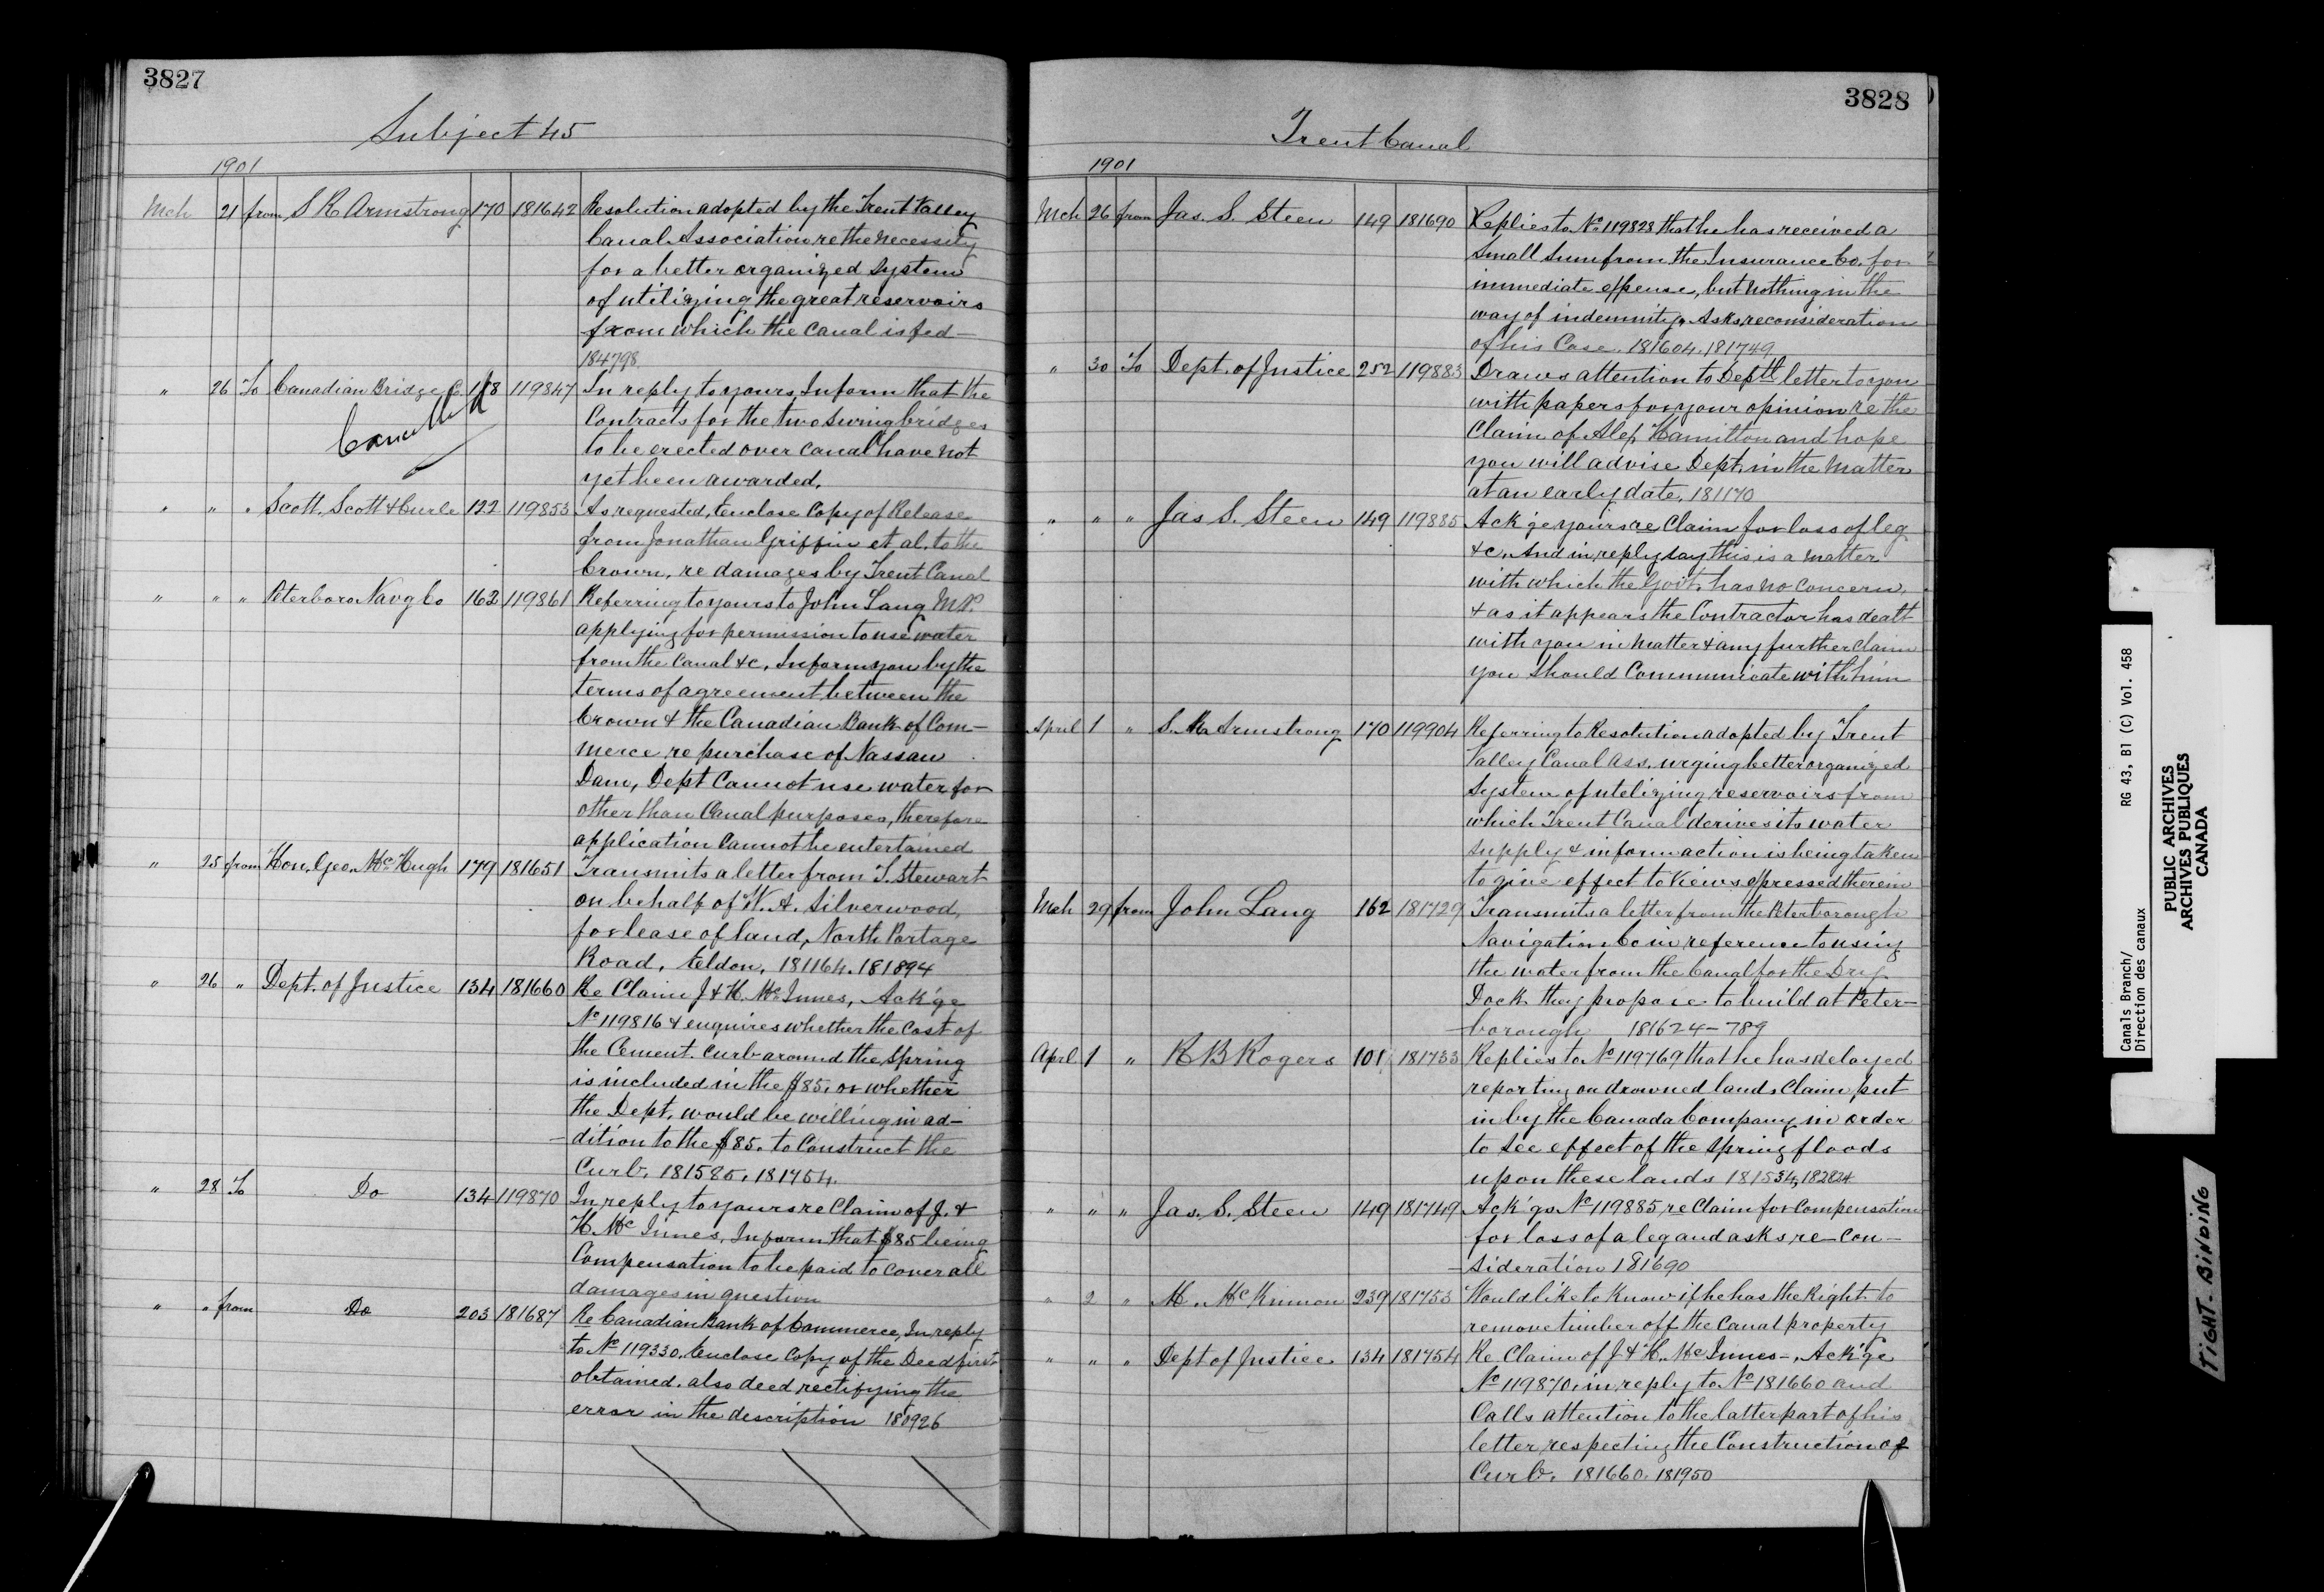 3827
Subject 45
1901
Mch 21 from S R Armstrong 170 181642 Resolution adopted by the Trent Valley
Canal Association re the necessity
for a better organized system
of utilizing the great reservoirs
from which the canal is fed —
184798
" 26 To Canadian Bridge Co. 118 119847 In reply to yours, Inform that the
Cancelled
Contracts for the two swing bridges
to be erected over canal have not
yet been awarded.
" " " Scott, Scott & Curle 122 119853 As requested, Enclose Copy of Release
from Jonathan Griffin et al. to the
Crown, re damages by Trent Canal
" " " Peterboro Navg Co 162 119861 Referring to yours to John Lang M.P.
applying for permission to use water
from the Canal &c, Inform you by the
terms of agreement between the
Crown & the Canadian Bank of Com-
merce, re purchase of Nassau
Dam, Dept Cannot use water for
other than Canal purposes, therefore
application Cannot be entertained
" 25 from Hon. Geo. McHugh 179 181651 Transmits a letter from T. Stewart
on behalf of W. A. Silverwood,
for lease of land, North Portage
Road, Eldon, 181164. 181894
" 26 " Dept. of Justice 134 181660 Re Claim J & H. McInnes, Ack'ge
No 119816 & enquires whether the cost of
the Cement curb around the Spring
is included in the $85. or whether
the Dept. would be willing in ad-
-dition to the $85. to Construct the
Curb. 181585. 181754.
" 28 To Do 134 119870 In reply to yours re Claim of J. &
H. McInnes, Inform that $85 being
Compensation to be paid to cover all
damages in question
" " from Do 203 181687 Re Canadian Bank of Commerce, In reply
to No 119330. Enclose Copy of the Deed first
obtained. also deed rectifying the
error in the description 180926
3828
Trent Canal
1901
Mch 26 from Jas. S. Steen 149 181690 Replies to No 119828 that he has received a
Small Sum from the Insurance Co. for
immediate expense, but nothing in the
way of indemnity. Asks reconsideration
of his Case. 181604. 181749
" 30 To Dept. of Justice 252 119883 Draws attention to Deptl letter to you
with papers for your opinion re the
Claim of Alex Hamilton and hope
you will advise Dept. in the Matter
at an early date. 181170
" " " Jas S. Steen 149 119885 Ack'ge yours re Claim for loss of leg
&c. And in reply say this is a matter
with which the Govt. has no concern,
& as it appears the Contractor has dealt
with you in matter & any further claim
you should Communicate with him
April 1 " S. R. Armstrong 170 119904 Referring to Resolution adopted by Trent
Valley Canal Ass. urging better organized
System of utelizing reservoirs from
which Trent Canal derives its water
supply & inform action is being taken
to give effect to Views expressed therein
Mch 29 from John Lang 162 181729 Transmits a letter from the Peterborough
Navigation Co in reference to using
the water from the Canal for the Dry
Dock they propose to build at Peter-
-borough 181624-789
April 1 " R B Rogers 101 181733 Replies to No 119769 that he has delayed
reporting on drowned lands Claim, put
in by the Canada Company in order
to see effect of the Spring floods
upon these lands 181534, 182824
" " " Jas. S. Steen 149 181749 Ack'gs No 119885 re Claim for Compensation
for loss of a leg and asks re-con-
-sideration 181690
" 2 " M. McKinnon 239 181753 Would like to know if he has the Right to
remove timber off the Canal property
" " " Dept of Justice 134 181754 Re Claim of J & H. McInnes-, Ack'ge
No 119870. in reply to No 181660 and
Calls attention to the latter part of his
letter respecting the Construction of
Curb. 181660. 181950
Canals Branch/ RG 43, B1 (C) Vol. 458
Direction des canaux
PUBLIC ARCHIVES
ARCHIVES PUBLIQUES
CANADA
TIGHT BINDING